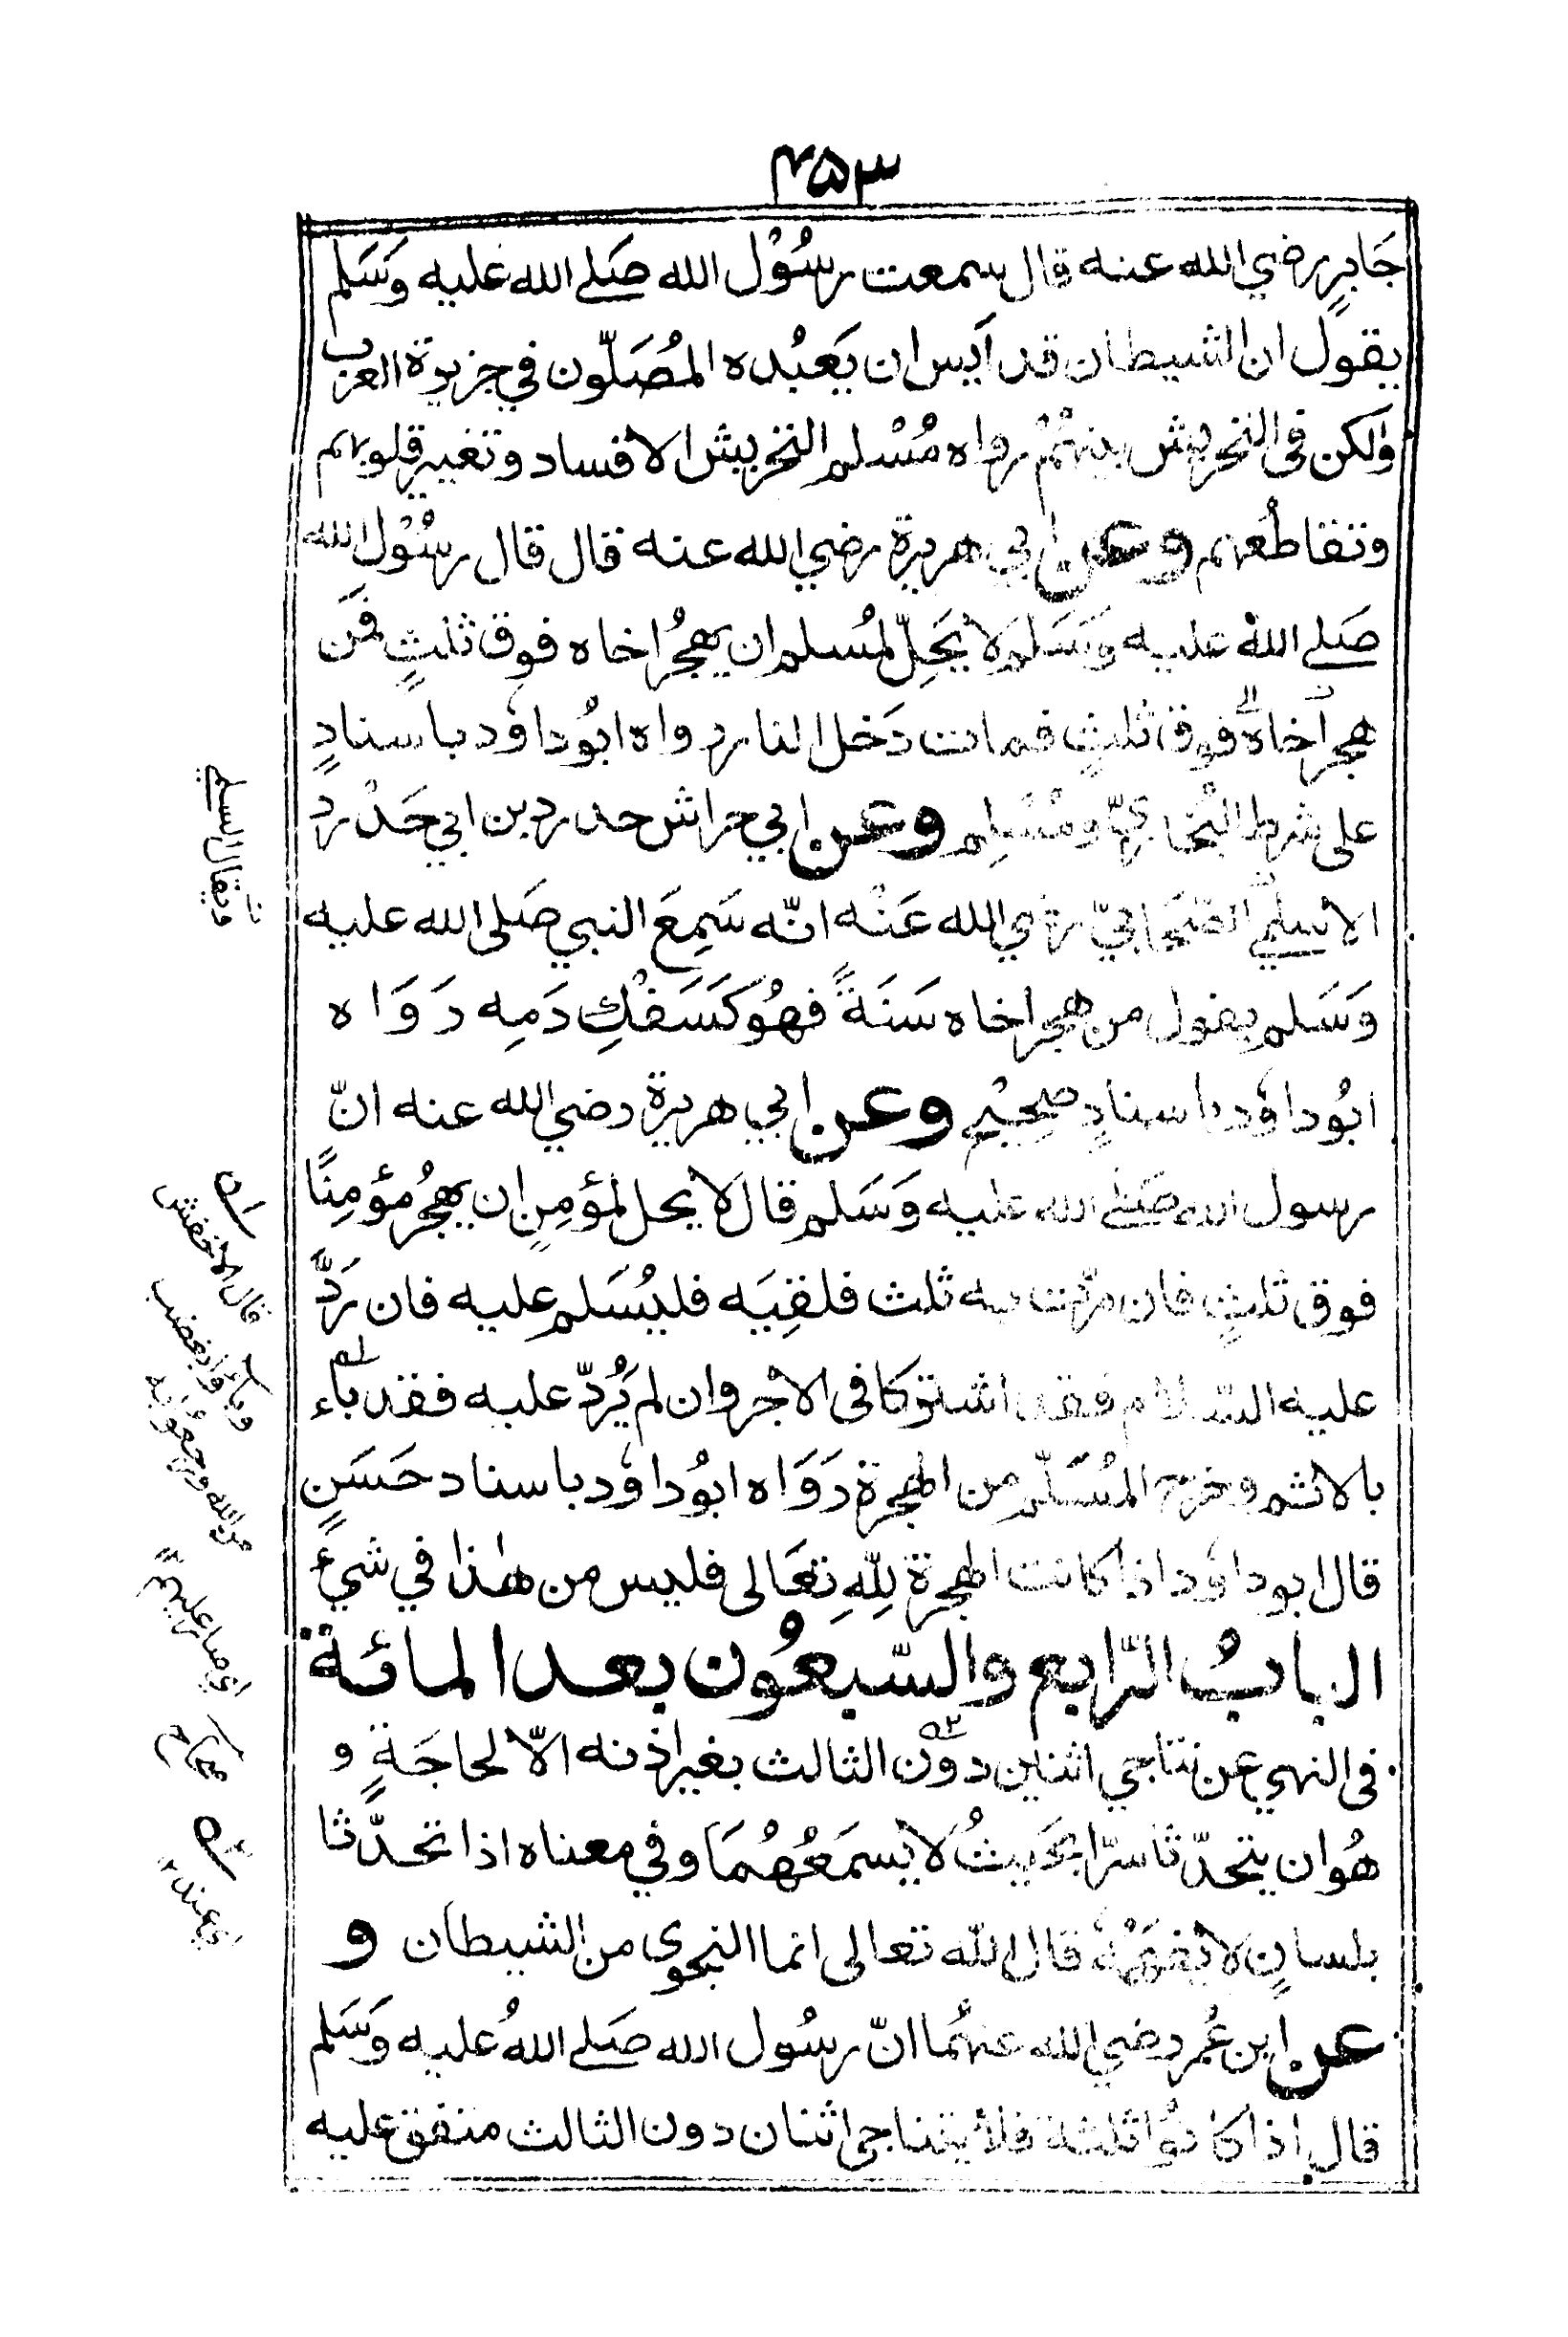 ۴۵۳
جَابِرٍ رضي الله عنه قال سمعت رسُوْل الله صَلى الله عليه وَسَلم
يقول ان الشيطان قد اَيس ان يَعبُده المُصَلّون في جزيرة العرب
وَلكن فى التحريش بينهُمْ رواه مُسْلم التحريش الافساد وتغيير قلوبهم
وتقاطُعهم وعن ابي هريرة رضي الله عنه قال قال رسُوْل الله
صَلى الله عليه وَسَلم لا يَحِلّ لمُسلم ان يهجُر اخاه فوق ثلثٍ فمَن
هجر اَخاه فوق ثلثٍ فمات دَخل النار رواه ابُوداوٗد باسنادٍ
على شرط البُخاريّ ومُسْلِم وعن ابي حراش حدرد بن ابي حَدْرد
الاسلَميّ الصَّحابيّ رضي الله عَنْه انّه سَمِعَ النبي صَلى الله عليه
وَسَلم يقول من هجر اخاه سَنَةً فهُو كَسَفْكِ دَمِه رَوَاه
ابُوداوٗد باسنادٍ صحِيْح وعن ابي هريرة رضي الله عنه انّ
رسول الله صَلى الله عليه وَسَلم قال لا يحل لمؤمِنٍ ان يهجُر مؤمِنًا
فوق ثلثٍ فان مرّت به ثلث فلقِيَه فليُسَلم عليه فان رَدَّ
عليه السّلام فقد اشتركا فى الاجر وان لم يُردّ عليه فقد باء
بالاثم وخرج المُسَلّم من الهجرة رَوَاه ابُوداوٗد باسناد حَسَنٍ
قال ابوداوٗد اذا كانت الهجرة لِلّٰهِ تعَالى فليس من هٰذا في شيءٍ
الباب الرّابع والسّبعُون بعد المائة
فى النهي عن تناجي اثنين دوٗن الثالث بغير اذنه الّا لحاجَةٍ و
هُو ان يتحدّثا سرّا بحَيثُ لا يسمَعُهُمَا وفي معناه اذا تحدّثا
بلسانٍ لا يفهَمُهٗ قال الله تعالى انما النجوى من الشيطان و
عن ابن عُمر رضي الله عنهُما انّ رسُول الله صَلى اللهُ عليه وَسَلم
قال اذا كانُوا ثلثة فلا يتناجى اثنان دون الثالث متفق عليه
ويقال السلمي
قال الاخفش
وباءُوا بغضب
من الله رجعُوا به
اي صار عليهم
اي عنده